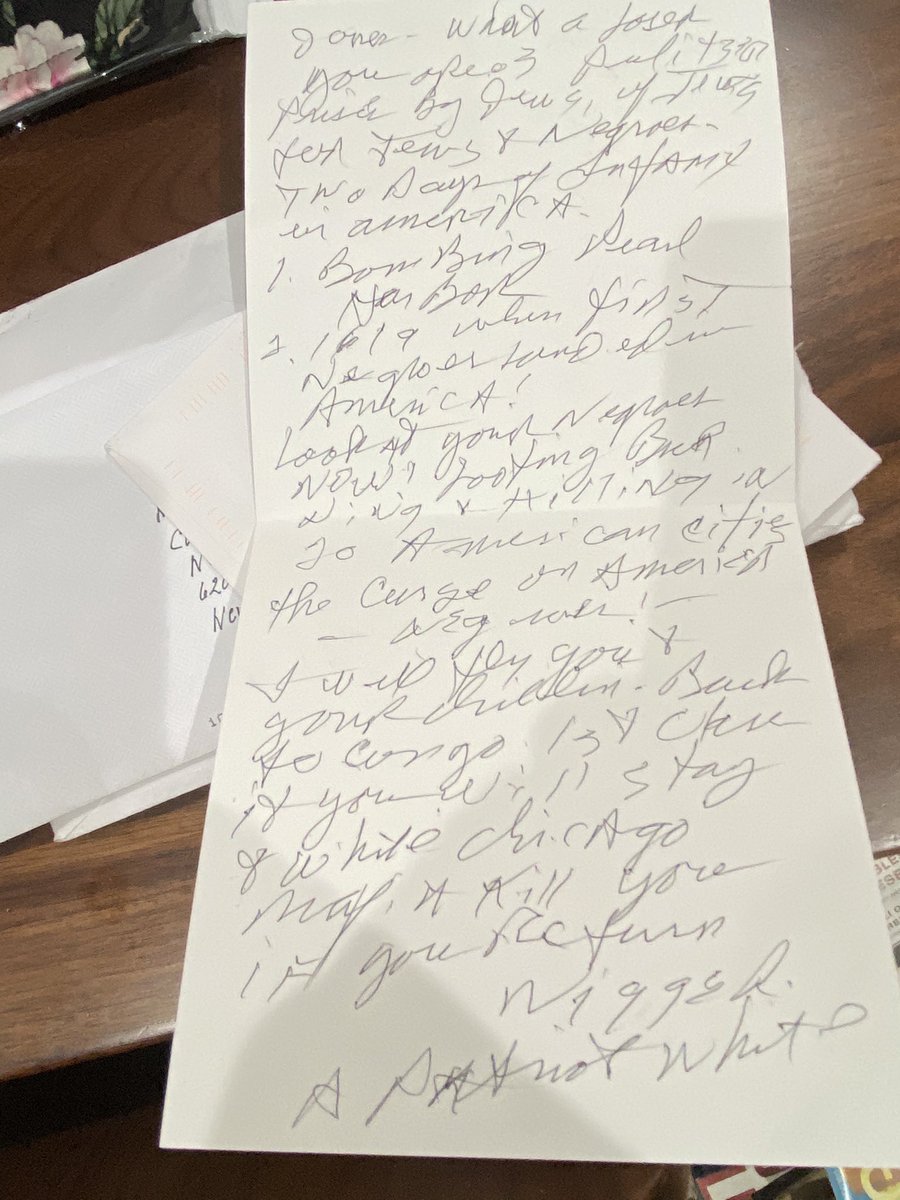 Jones - What a loser
you are is Pulitzer
Prise by Jews, of Jews
for Jews & Negroes -
Two Days of Infamy
in AmericA.
1. BomBing Pearl
HarBor
2. 1619 when first
Negroes landed in
AmericA!
Look at your Negroes
Now! Looting Bur
Ning & Killing in
20 American cities
the Curse on America
- Negroes! -
I will fly you &
your chilIn. Back
to Congo. 1st Class
if you will stay
& White ChicAgo
MafiA Kill you
if you Return
Nigger.
A PAtriot White
C
N
620